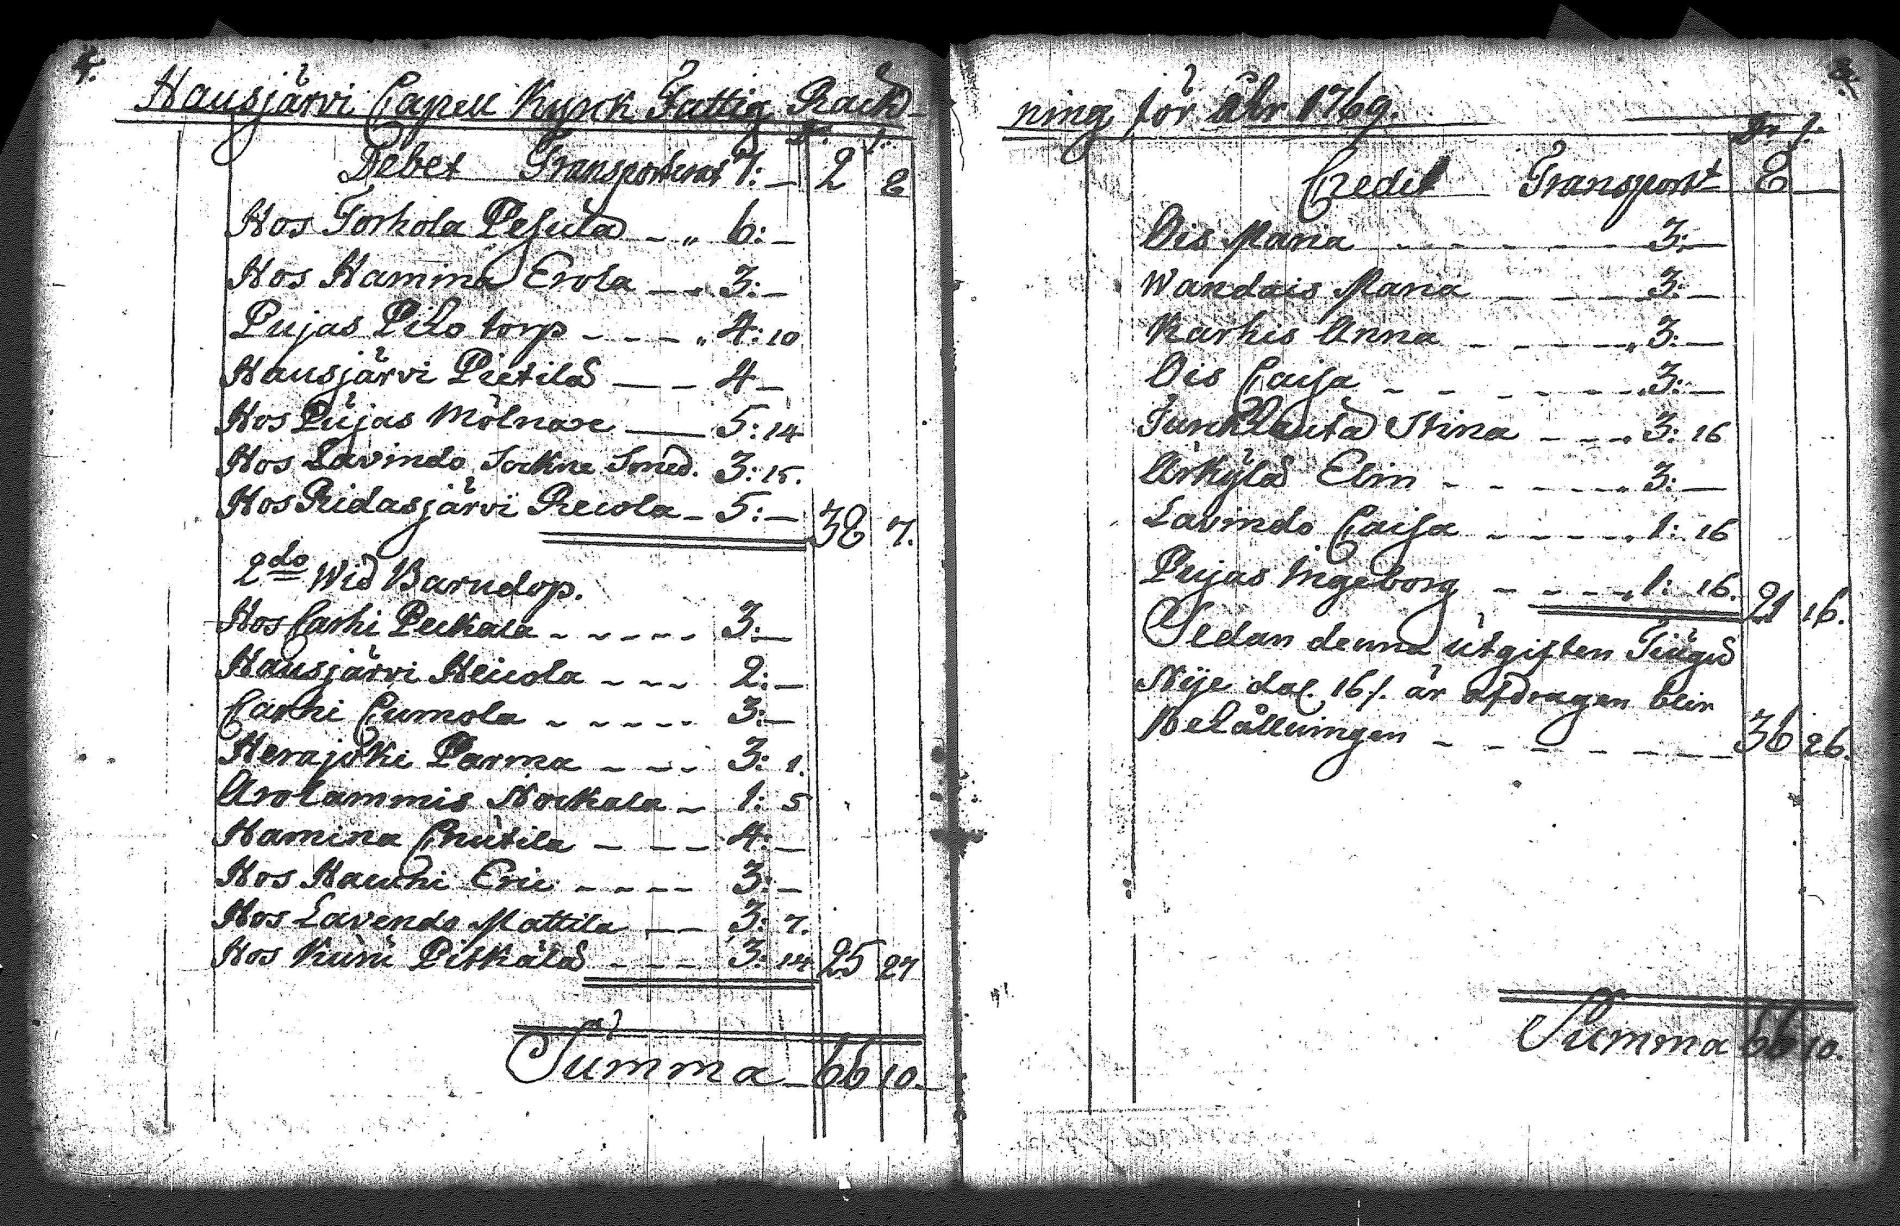 4.
Hausjärvi Capell Kyrck Fattig Räck-
Debet Transporterat 7: — 2 8
Hos Torhola Pesula — „ 6: —
Hos Hamina Erola — „ 3: —
Pujas Pilo torp — — — „ 4: 10
Hausjärvi Pietilä — — 4 —
Hos Pujas Mölnare — 5: 14
Hos Lavindo Sockne Smed. 3: 15.
Hos Ridasjärvi Recola — 5: — 38 7.
2do Wid Barndop.
Hos Carhi Peckala — — — — — 3: —
Hausjärvi Heicola — — — 2: —
Carhi Cumola — — — — — 3: —
Herajoki Parma — — — — 3: 1.
Arolammis Nockala — 1: 5
Hamina Cnutila — — — 4: —
Hos Hauhi Eric — — — — 3: —
Hos Lavendo Mattila — — 3: 7.
Hos Kuru Pitkälä — — — 3: 14 25 27
Summa — 66 10.
ning för åhr 1769.
Credit Transport 8 —
Ois Maria — — — — — — 3: —
Wandais Maria — — — — 3: —
Karhis Anna — — — — — 3: —
Ois Caisa — — — — — — 3: —
Stina — — — 3: 16
Arkylä Elin — — — — — 3: —
Lavindo Caisa — — — — — 1: 16
Pujas Ingeborg — — — — 1: 16. 21 16.
Sedan denna utgiften Tiugu
Nije dal. 16 /. är afdragen blir
Behållningen — — — — — — — 36 26.
Summa 66 10.